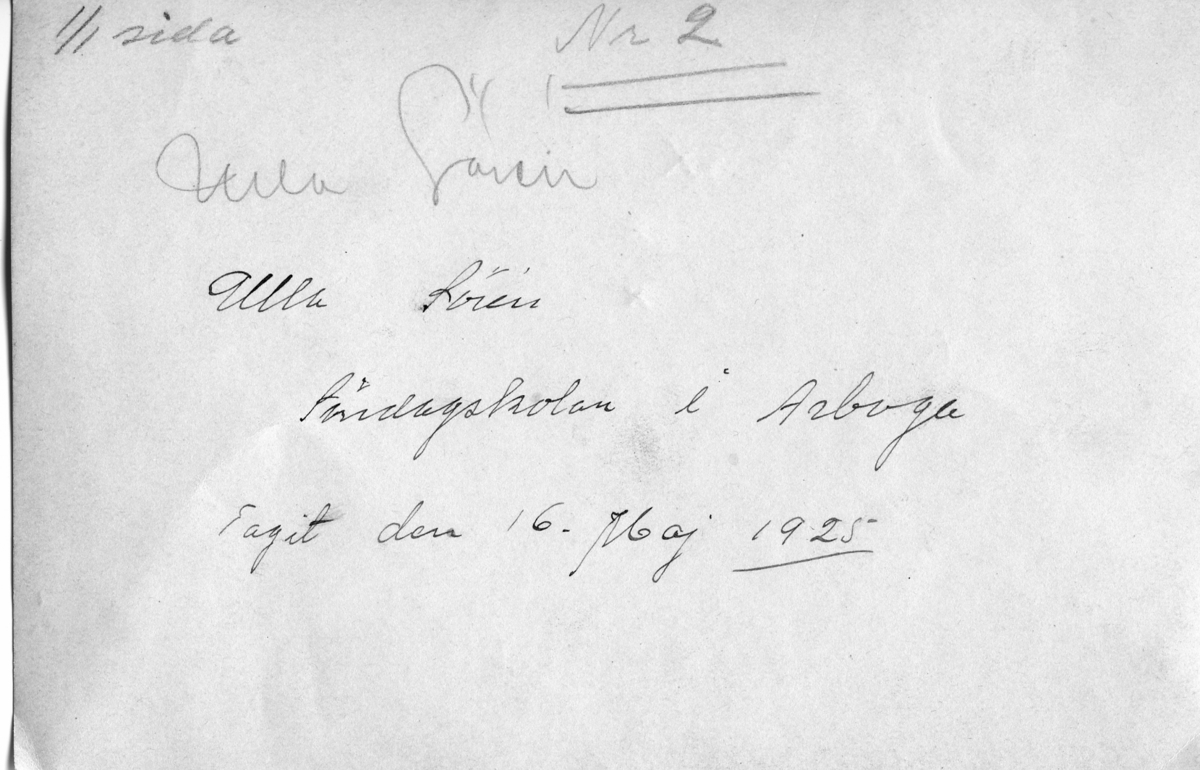 1/1 sida Nr 2
Ulla Sörén
Ulla Sörén
Söndagskolan i Arboga
Tagit den 16 - Maj 1925